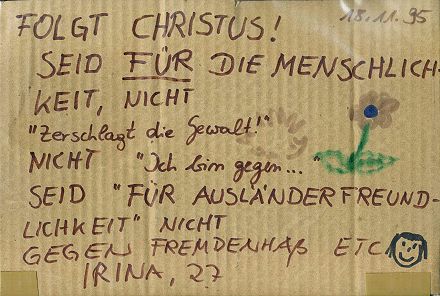 FOLGT CHRISTUS!
18.11.95
SEID FÜR DIE MENSCHLICH-
KEIT, NICHT
"Zerschlagt die Gewalt!"
NICHT "Ich bin gegen..."
SEID "FÜR AUSLÄNDERFREUND-
LICHKEIT" NICHT
GEGEN FREMDENHAß ETC
IRINA, 27